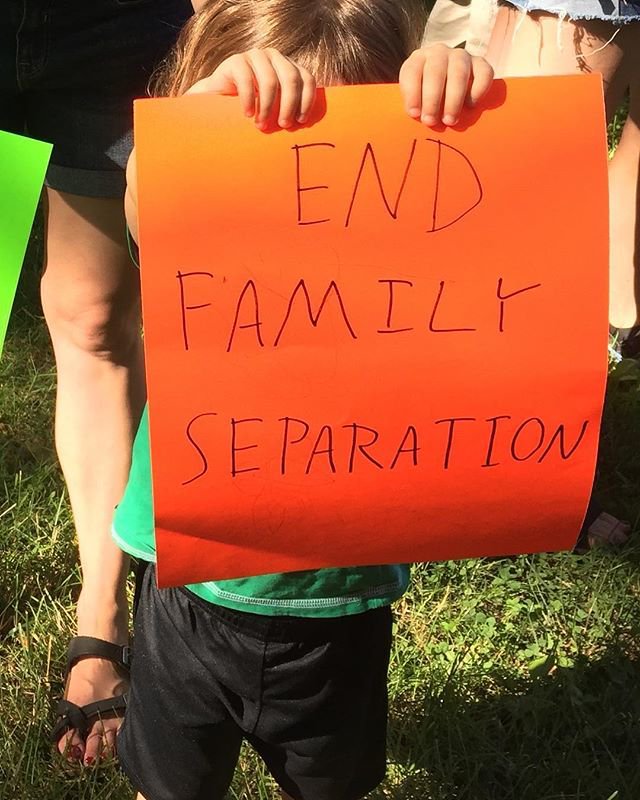 END
FAMILY
SEPARATION